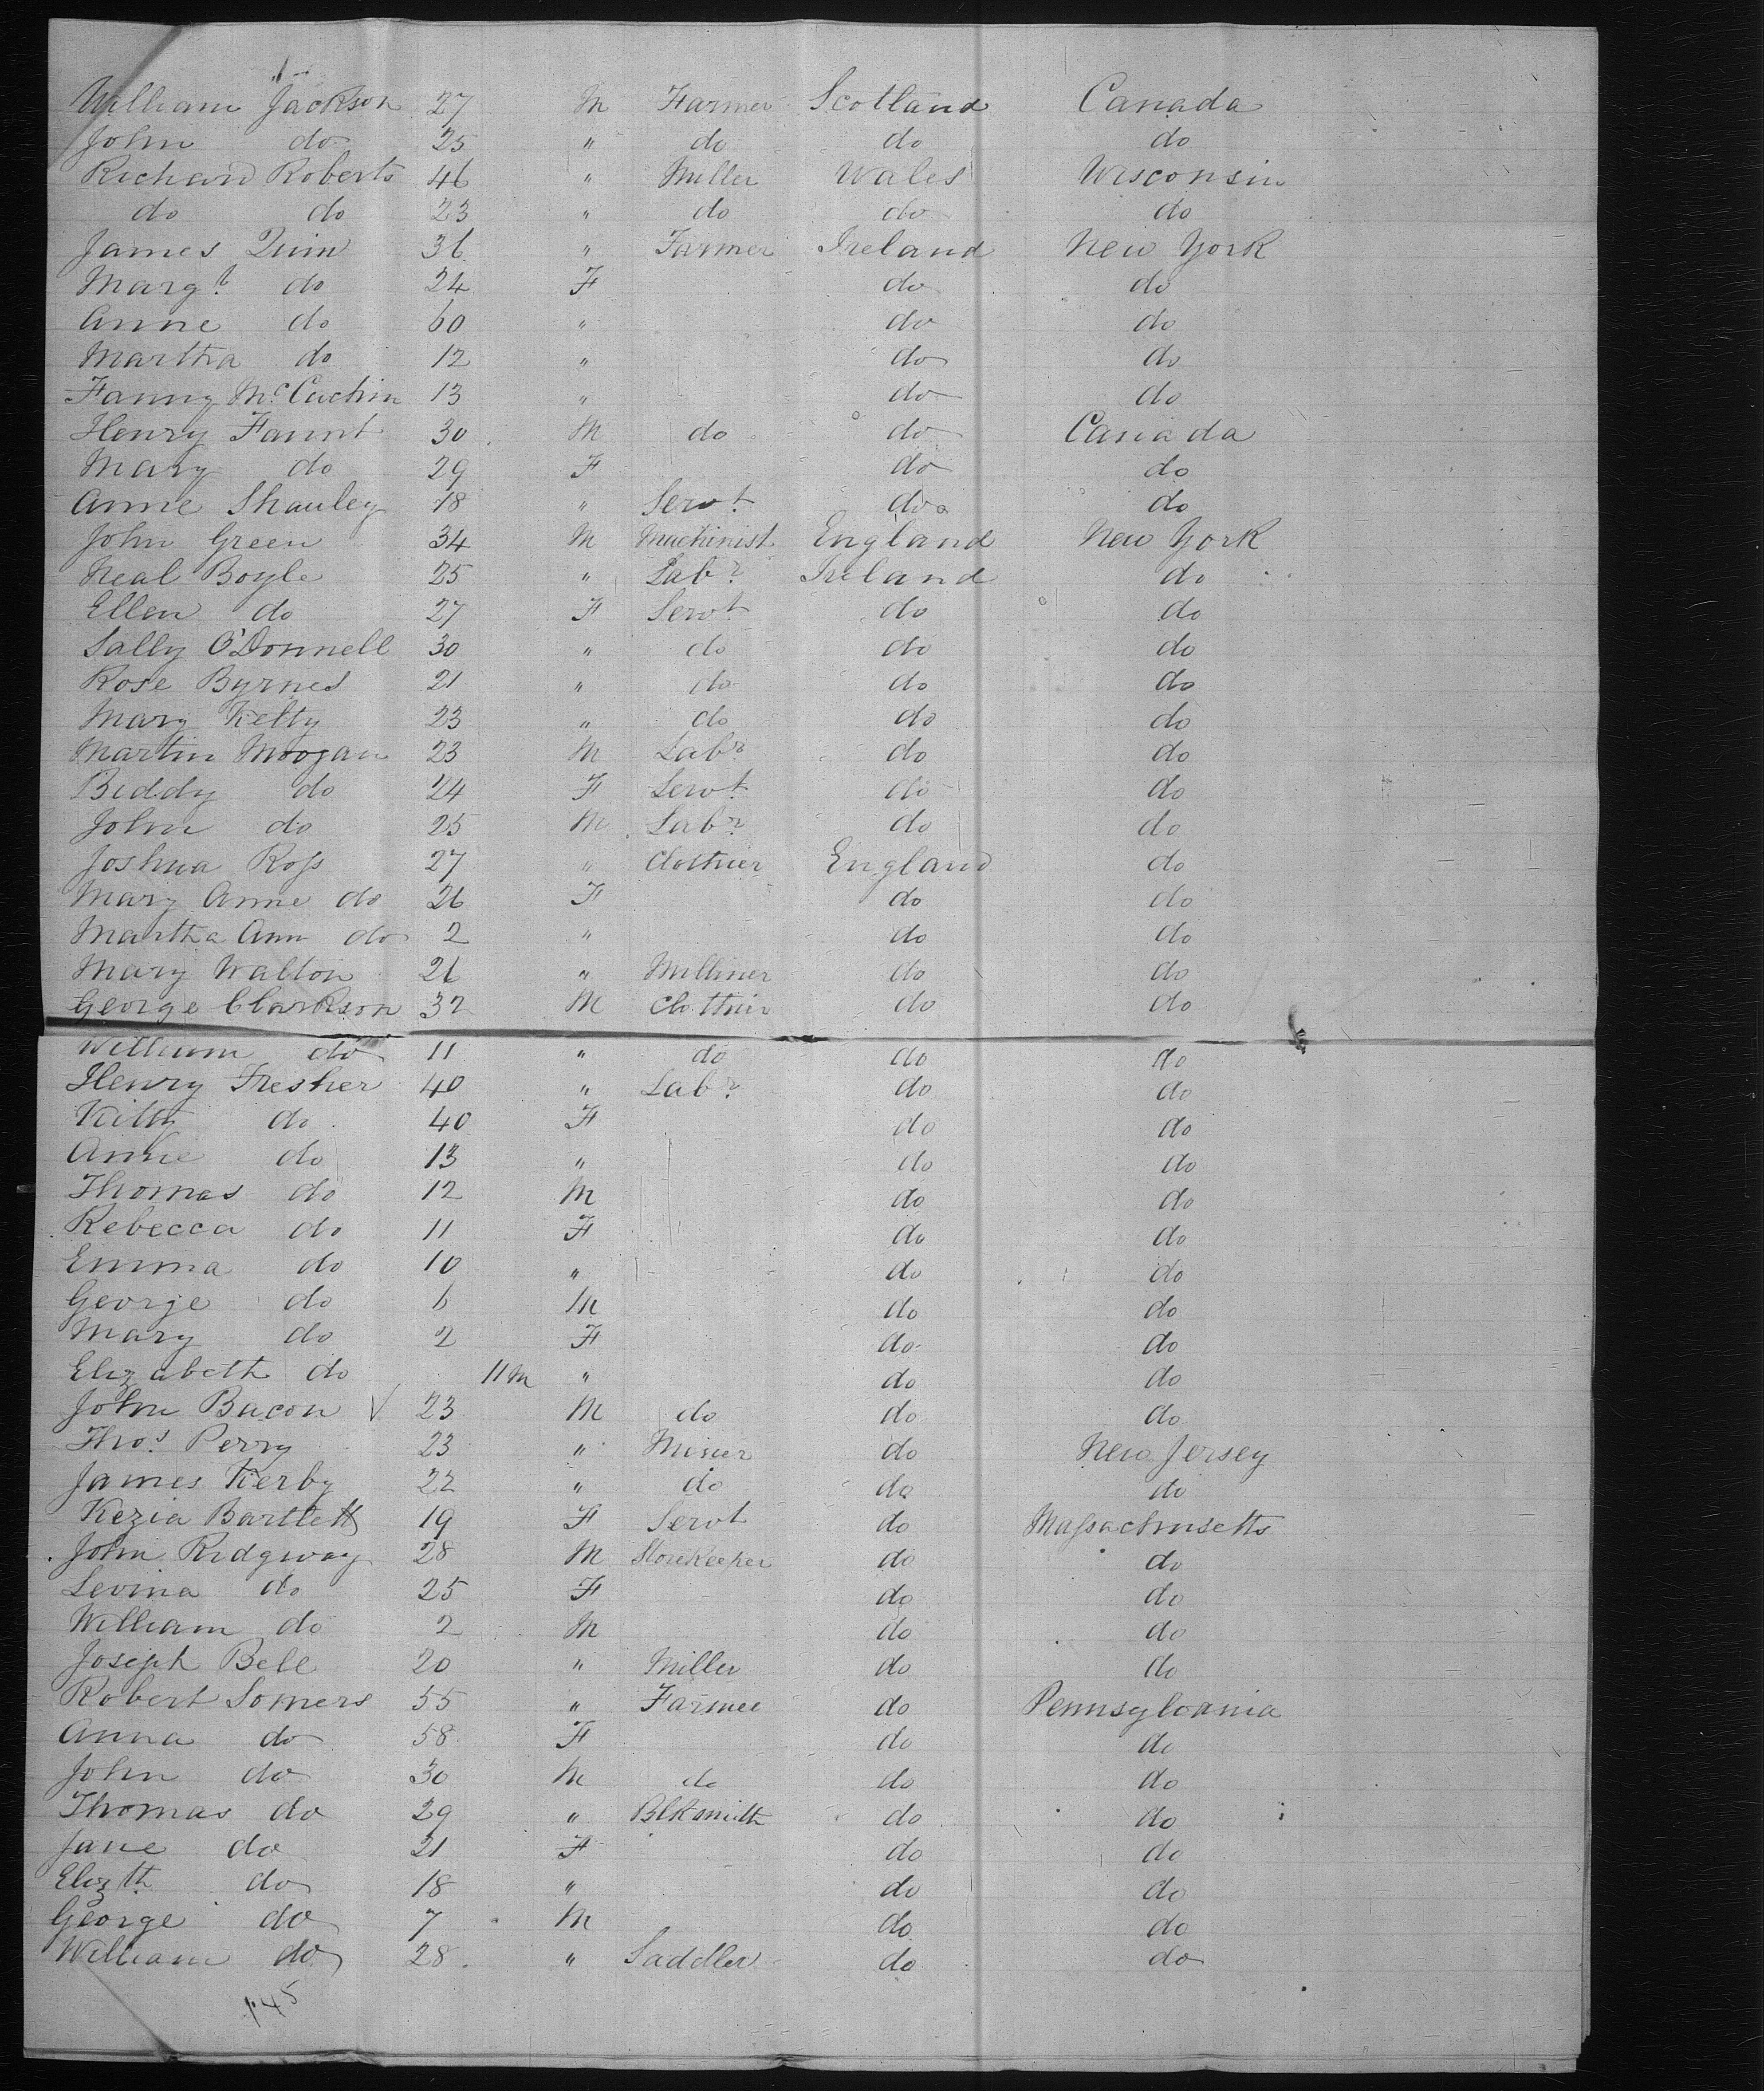 William Jackson 27 M Farmer Scotland Canada
John do 25 " do do do
Richard Roberts 46 " Miller Wales Wisconsin
do do 23 " do do do
James Quin 36 " Farmer Ireland New York
Margt. do 24 F do do
Anne do 60 " do do
Martha do 12 " do do
Fanny McCuchin 13 " do do
Henry Faunt 30 M do do Canada
Mary do 29 F do do
Anne Shauley 18 " Servt. do do
John Green 34 M Machinist England New York
Neal Boyle 25 " Labr. Ireland do
Ellen do 27 F Servt. do do
Sally O'Donnell 30 " do do do
Rose Byrnes 21 " do do do
Mary Kelty 23 " do do do
Martin Moogan 23 M Labr. do do
Biddy do 24 F Servt. do do
John do 25 M Labr. do do
Joshua Ross 27 " Clothier England do
Mary Anne do 26 F do do
Martha Ann do 2 " do do
Mary Walton 26 " Milliner do do
George Clarkson 32 M Clothier do do
William do 11 " do do do
Henry Fresher 40 " Labr. do do
Kitty do 40 F do do
Anne do 13 " do do
Thomas do 12 M do do
Rebecca do 11 F do do
Emma do 10 " do do
George do 6 M do do
Mary do 2 F do do
Elizabeth do 11m " do do
John Bacon 23 M do do do
Thos. Perry 23 " Miner do New Jersey
James Kerby 22 " do do do
Kezia Bartlett 19 F Servt do Massachusetts
John Ridgway 28 M Storekeeper do do
Levina do 25 F do do
William do 2 M do do
Joseph Bell 20 " Miller do do
Robert Somers 55 " Farmer do Pennsylvania
Anna do 58 F do do
John do 30 M do do do
Thomas do 29 " Blksmith do do
Jane do 21 F do do
Elizth. do 18 " do do
George do 7 M do do
William do 28 " Saddler do do